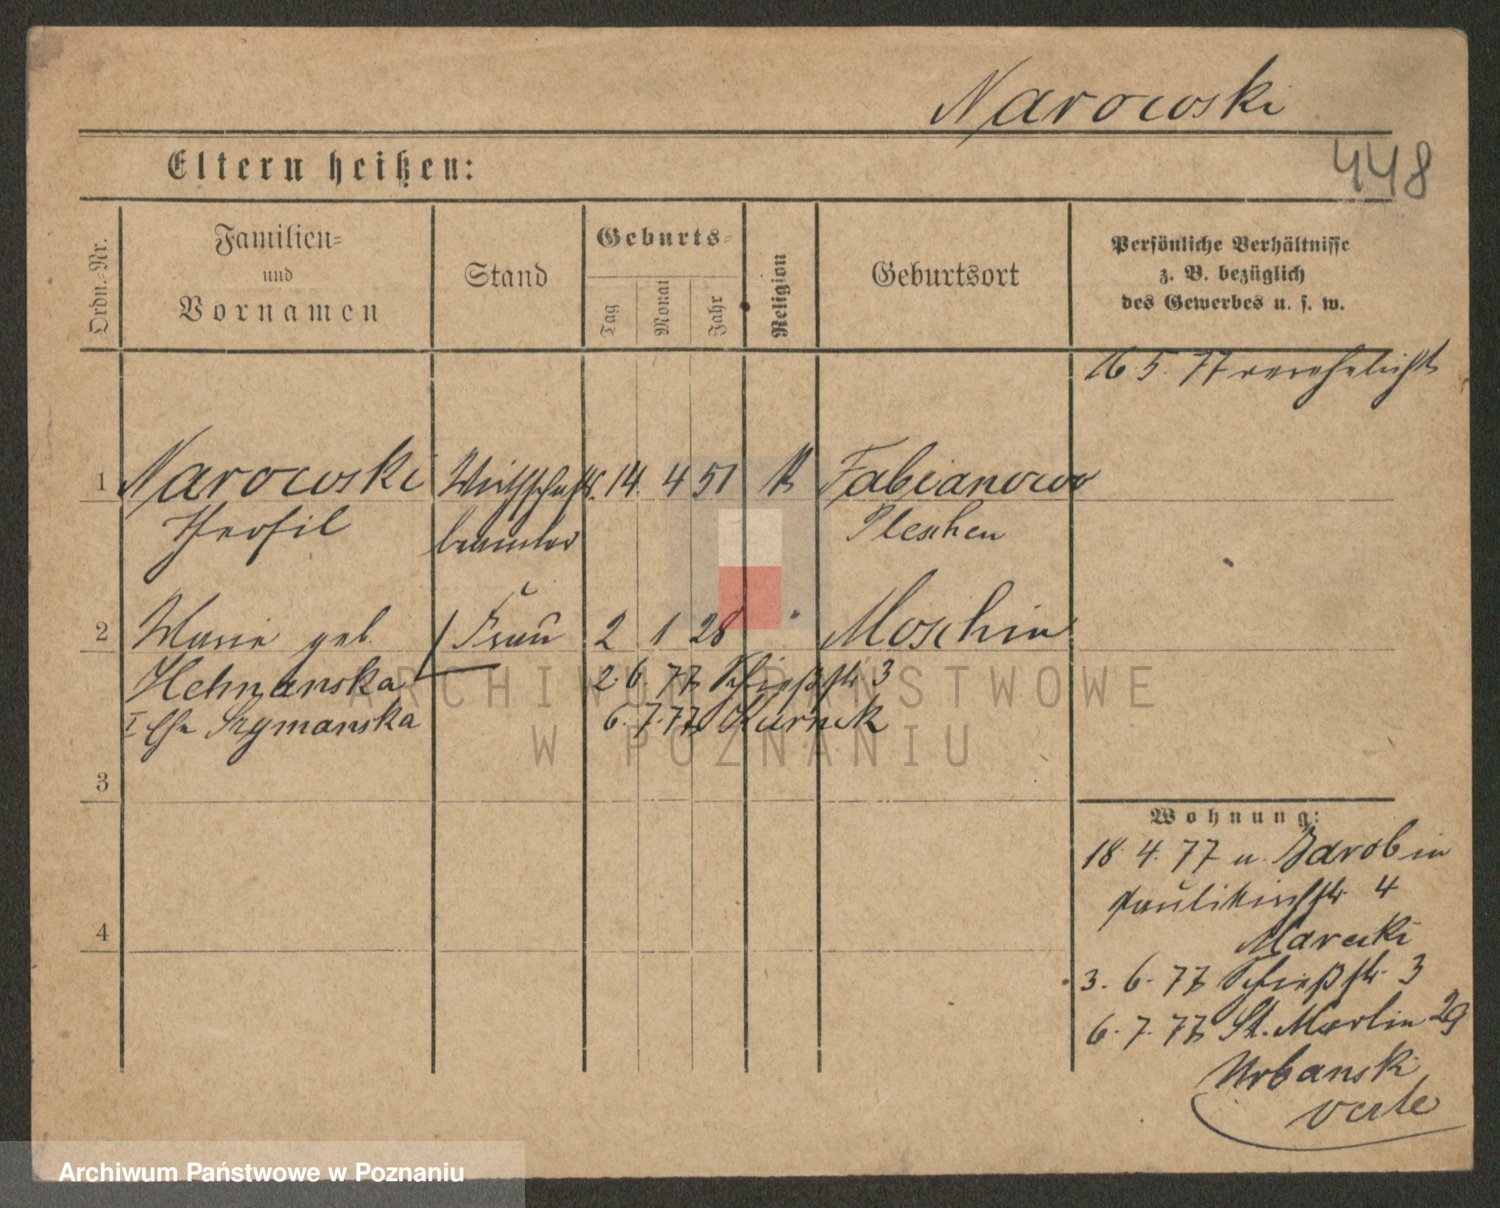 Narowski
448
Eltern heißen:
Ordn.-Nr.
Familien-
und
Vornamen
Stand
Geburts-
Tag
Monat
Jahr
Religion
Geburtsort
Persönliche Verhältnisse
z. B. bezüglich
des Gewerbes u. s. w.
16. 5. 77 verehelicht
1 Narowski Wirthschafts. 14. 4 51 K Fabianowo
Theofil beamter Pleschen
2 Marie geb. Frau 2 1 28 " Moschin
2. 6. 77 Schießstr 3
6. 7. 77 Kurnik
I Ehe Szymanska
3
Wohnung:
18. 4. 77 u.
Paulikirchstr 4
4
Marecki
3. 6. 77 Schießstr. 3
6. 7. 77 St. Martin 29
Urbanski
verte
ARCHIWUM PAŃSTWOWE
W POZNANIU
Archiwum Państwowe w Poznaniu